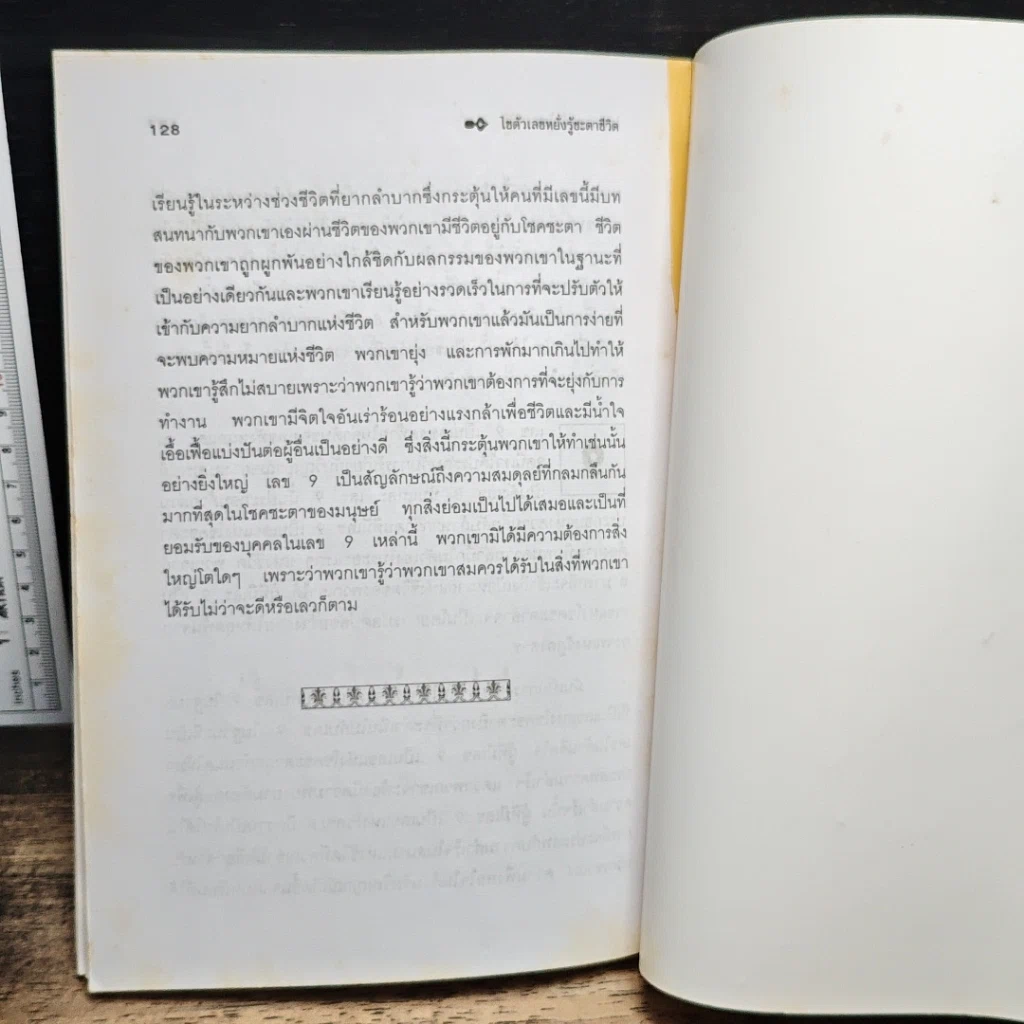 128
ไขตัวเลขหยั่งรู้ชะตาชีวิต
เรียนรู้ในระหว่างช่วงชีวิตที่ยากลำบากซึ่งกระตุ้นให้คนที่มีเลขนี้มีบท
สนทนากับพวกเขาเองผ่านชีวิตของพวกเขามีชีวิตอยู่กับโชคชะตา ชีวิต
ของพวกเขาถูกผูกพันอย่างใกล้ชิดกับผลกรรมของพวกเขาในฐานะที่
เป็นอย่างเดียวกันและพวกเขาเรียนรู้อย่างรวดเร็วในการที่จะปรับตัวให้
เข้ากับความยากลำบากแห่งชีวิต สำหรับพวกเขาแล้วมันเป็นการง่ายที่
จะพบความหมายแห่งชีวิต พวกเขายุ่ง และการพักมากเกินไปทำให้
พวกเขารู้สึกไม่สบายเพราะว่าพวกเขารู้ว่าพวกเขาต้องการที่จะยุ่งกับการ
ทำงาน พวกเขามีจิตใจอันเร่าร้อนอย่างแรงกล้าเพื่อชีวิตและมีน้ำใจ
เอื้อเฟื้อแบ่งปันต่อผู้อื่นเป็นอย่างดี ซึ่งสิ่งนี้กระตุ้นพวกเขาให้ทำเช่นนั้น
อย่างยิ่งใหญ่ เลข 9 เป็นสัญลักษณ์ถึงความสมดุลย์ที่กลมกลืนกัน
มากที่สุดในโชคชะตาของมนุษย์ ทุกสิ่งย่อมเป็นไปได้เสมอและเป็นที่
ยอมรับของบุคคลในเลข 9 เหล่านี้ พวกเขามิได้มีความต้องการสิ่ง
ใหญ่โตใดๆ เพราะว่าพวกเขารู้ว่าพวกเขาสมควรได้รับในสิ่งที่พวกเขา
ได้รับไม่ว่าจะดีหรือเลวก็ตาม
inches